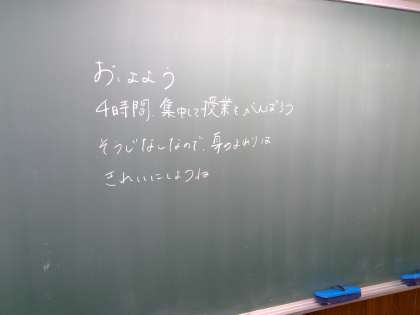 おはよう
4時間、集中して授業をがんばろう
そうじなしなので、身のまわりは
きれいにしようね